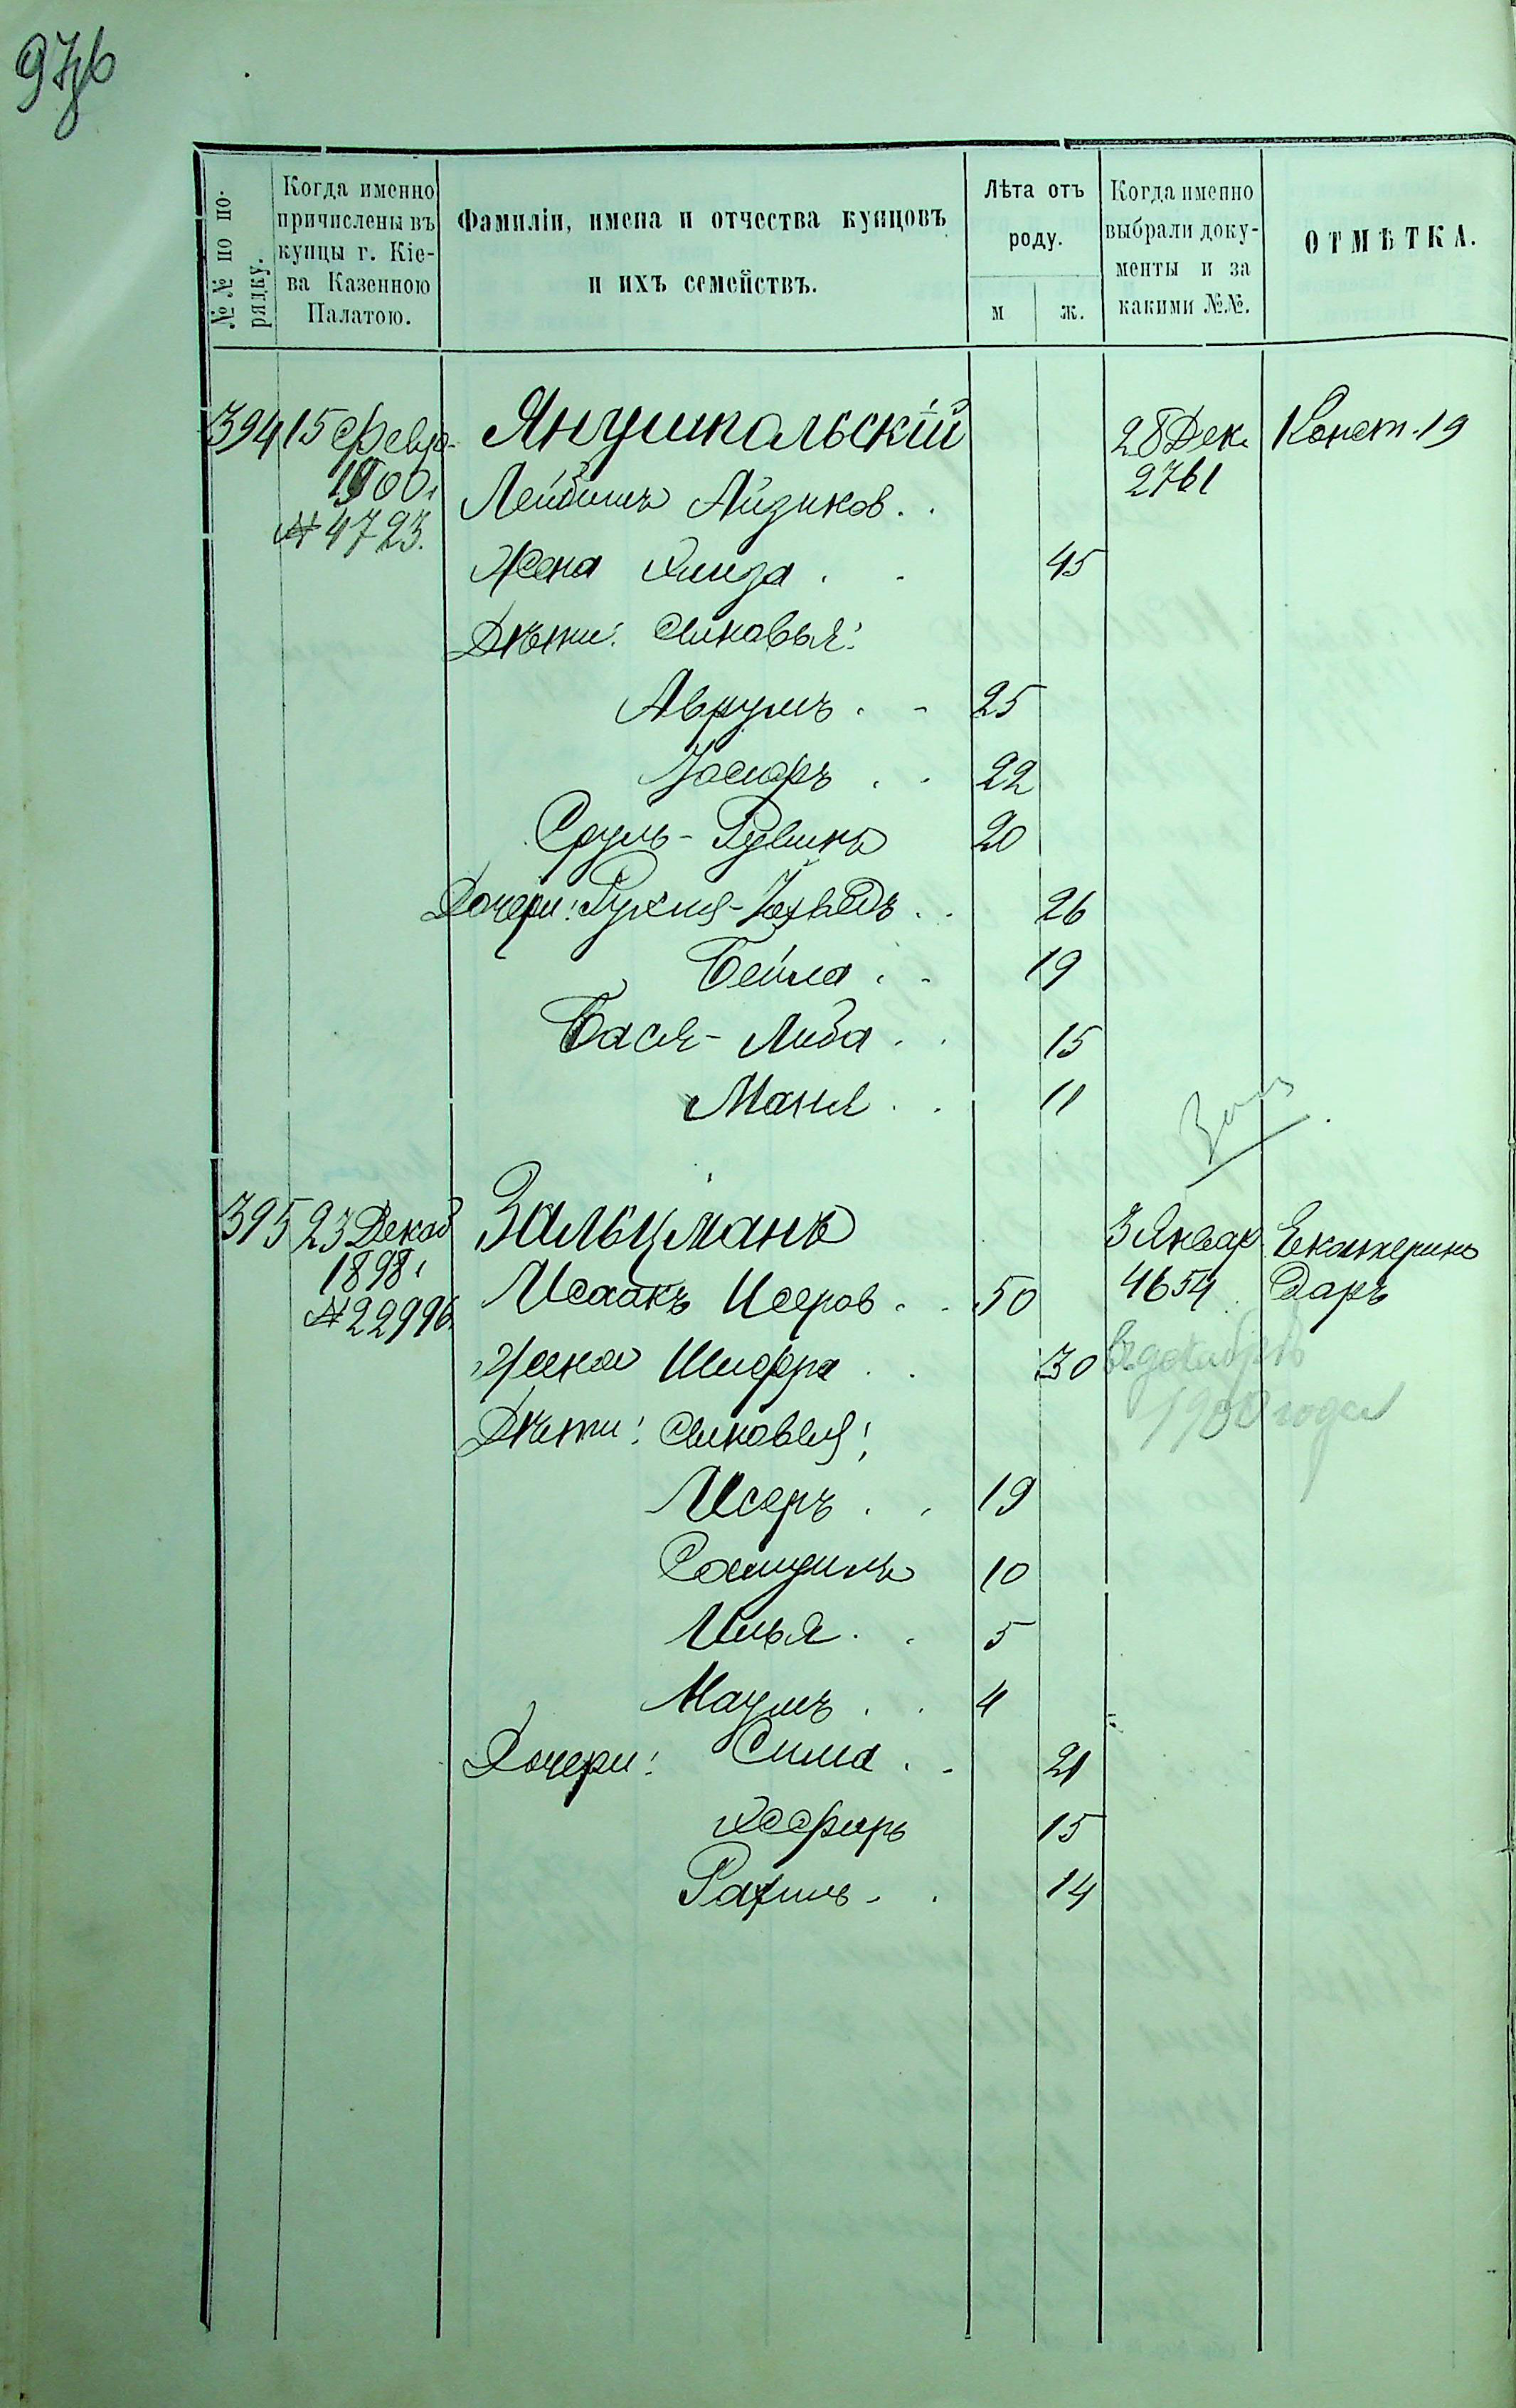 976
№№ по по-
рядку.
Когда именно
причислены въ
купцы г. Кіе-
ва Казенною
Палатою.
Фамиліи, имена и отчества купцовъ
и ихъ семействъ.
Лѣта отъ
роду.
м ж.
Когда именно
выбрали доку-
менты и за
какими №№.
ОТМѢТКА.
394 15 февр. Янушпольскій 28 Дек. Конст. 19
1900 г. Лейбишъ Айзиков. 2761
№ 4723.
Жена Хинда 45
Дѣти: сыновья:
Аврумъ 25
Іосифъ 22
Сруль-Рувинъ 20
Дочери: Рухля-Іохведъ 26
Бейла 19
Бася-Люба 15
Маня 11
395 23 Декаб Зальцманъ 3 Январ Екатерино
1898 г Исаакъ Исеров. 50 4654 даръ
№ 22996.
Жена Шифра 30 въ декабрѣ
1900 года
Дѣти: сыновья:
Исеръ 19
Самуилъ 10
Илья 5
Наумъ 4
Дочери: Сима 21
Эсфирь 15
Рахиль 14